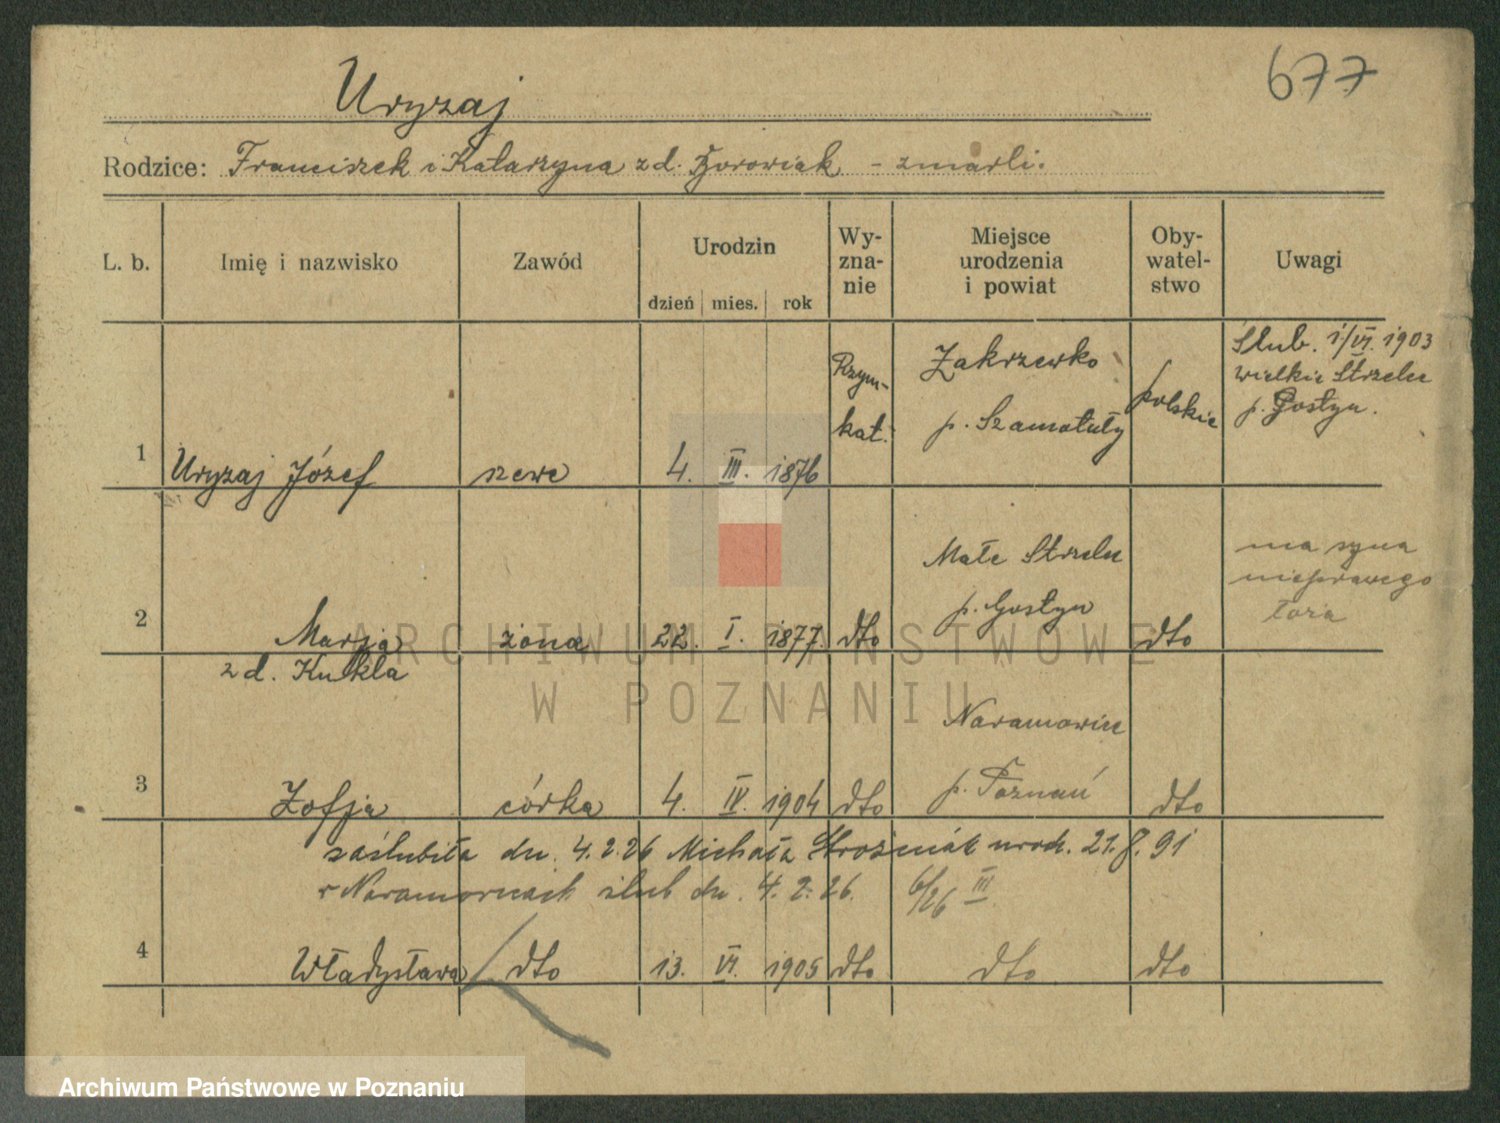 677
Uryzaj
Rodzice: Franciszek i Katarzyna z d. - zmarli.
L. b. Imię i nazwisko Zawód Urodzin Wy- Miejsce Oby- Uwagi
zna- urodzenia watel-
nie i powiat stwo
dzień mies. rok
1 Uryzaj Józef szewc 4. III. 1876 Rzym- kat. Zakrzewko p. Szamotuły polskie Ślub. 1/VI. 1903
wielkie Strzelce
p. Gostyn.
2 Marja żona 22. I. 1877. dto Małe Strzelce p. Gostyn dto ma syna
nieprawego
łoża
z d. Kukla
3 Zofja córka 4. IV. 1904 dto Naramowice p. Poznań dto
zaślubiła dn. 4.2.26 Michała urod. 21.8.91
w Naramowicach ślub dn. 4.2.26. 6/26 III
4 Władysława dto 13. VI. 1905 dto dto dto
ARCHIWUM PAŃSTWOWE
W POZNANIU
Archiwum Państwowe w Poznaniu